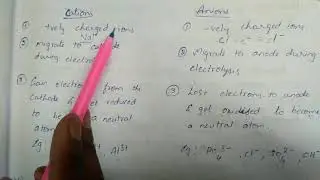 Cations
① +vely charged ions
Na+
② Migrate to cathode
during electro
③ Gain electrons from the
cathode & get reduced
to be a neutral
atom
Eg
Al3+
Anions
① -vely charged ions
Cl + e- = Cl-
② Migrate to anode during
electrolysis
③ Lost electrons to anode
& get oxidised to become
a neutral atom.
Eg: PO₄3-, Cl-, SO₄2-, OH-